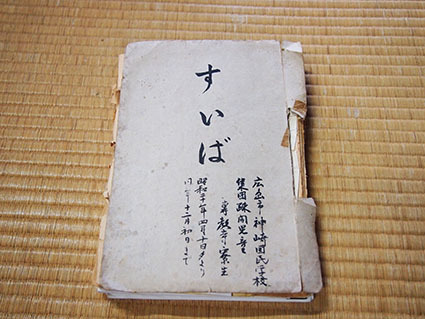 すいば
広島市神崎国民学校
集団疎開児童
寮生
昭和二十年四月十日夕より
同年十二月初日まで